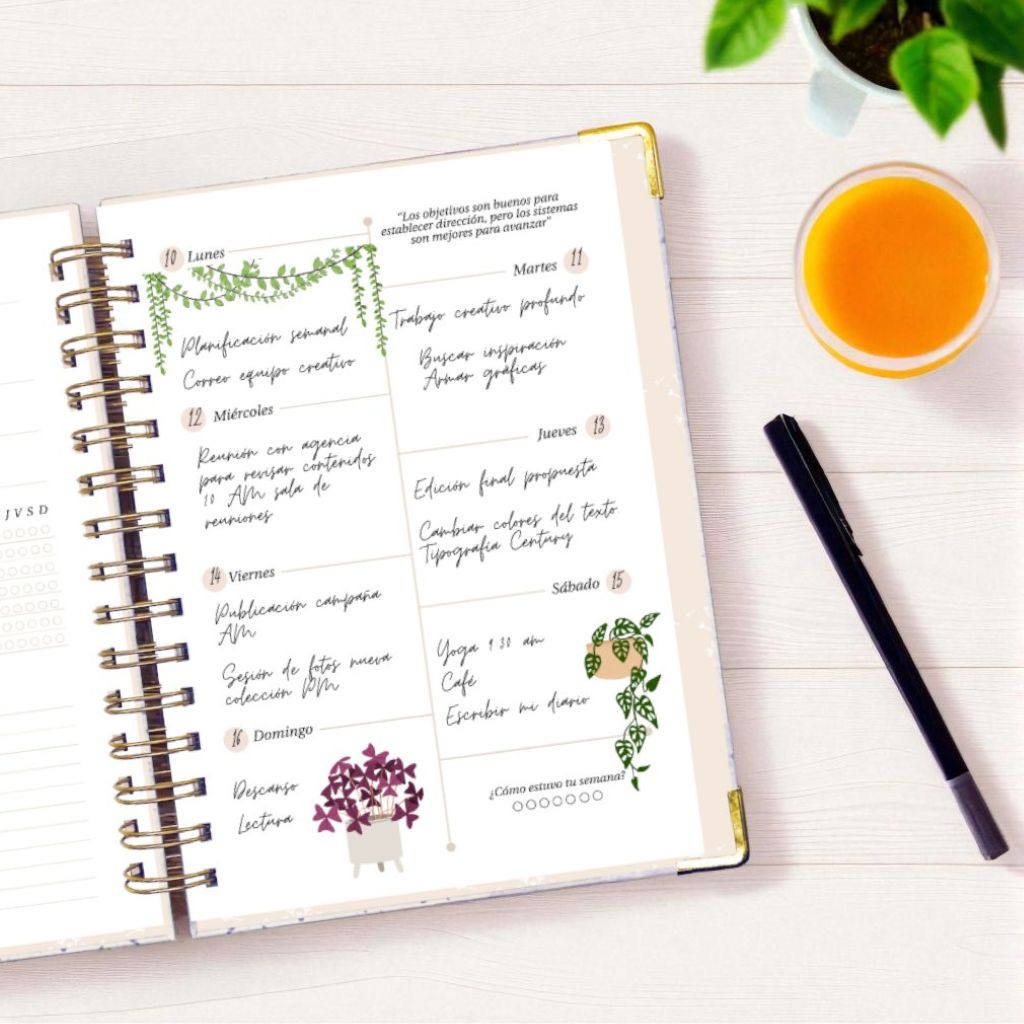 J V S D
"Los objetivos son buenos para
establecer dirección, pero los sistemas
son mejores para avanzar"
10 Lunes
Planificación semanal
Correo equipo creativo
Martes 11
Trabajo creativo profundo
Buscar inspiración
Armar gráficas
12 Miércoles
Reunión con agencia
para revisar contenidos
10 AM sala de
reuniones
Jueves 13
Edición final propuesta
Cambiar colores del texto.
Tipografía Century
14 Viernes
Publicación campaña
AM
Sesión de fotos nueva
colección PM
Sábado 15
Yoga 9 30 am
Café
Escribir mi diario
16 Domingo
Descanso
Lectura
¿Cómo estuvo tu semana?